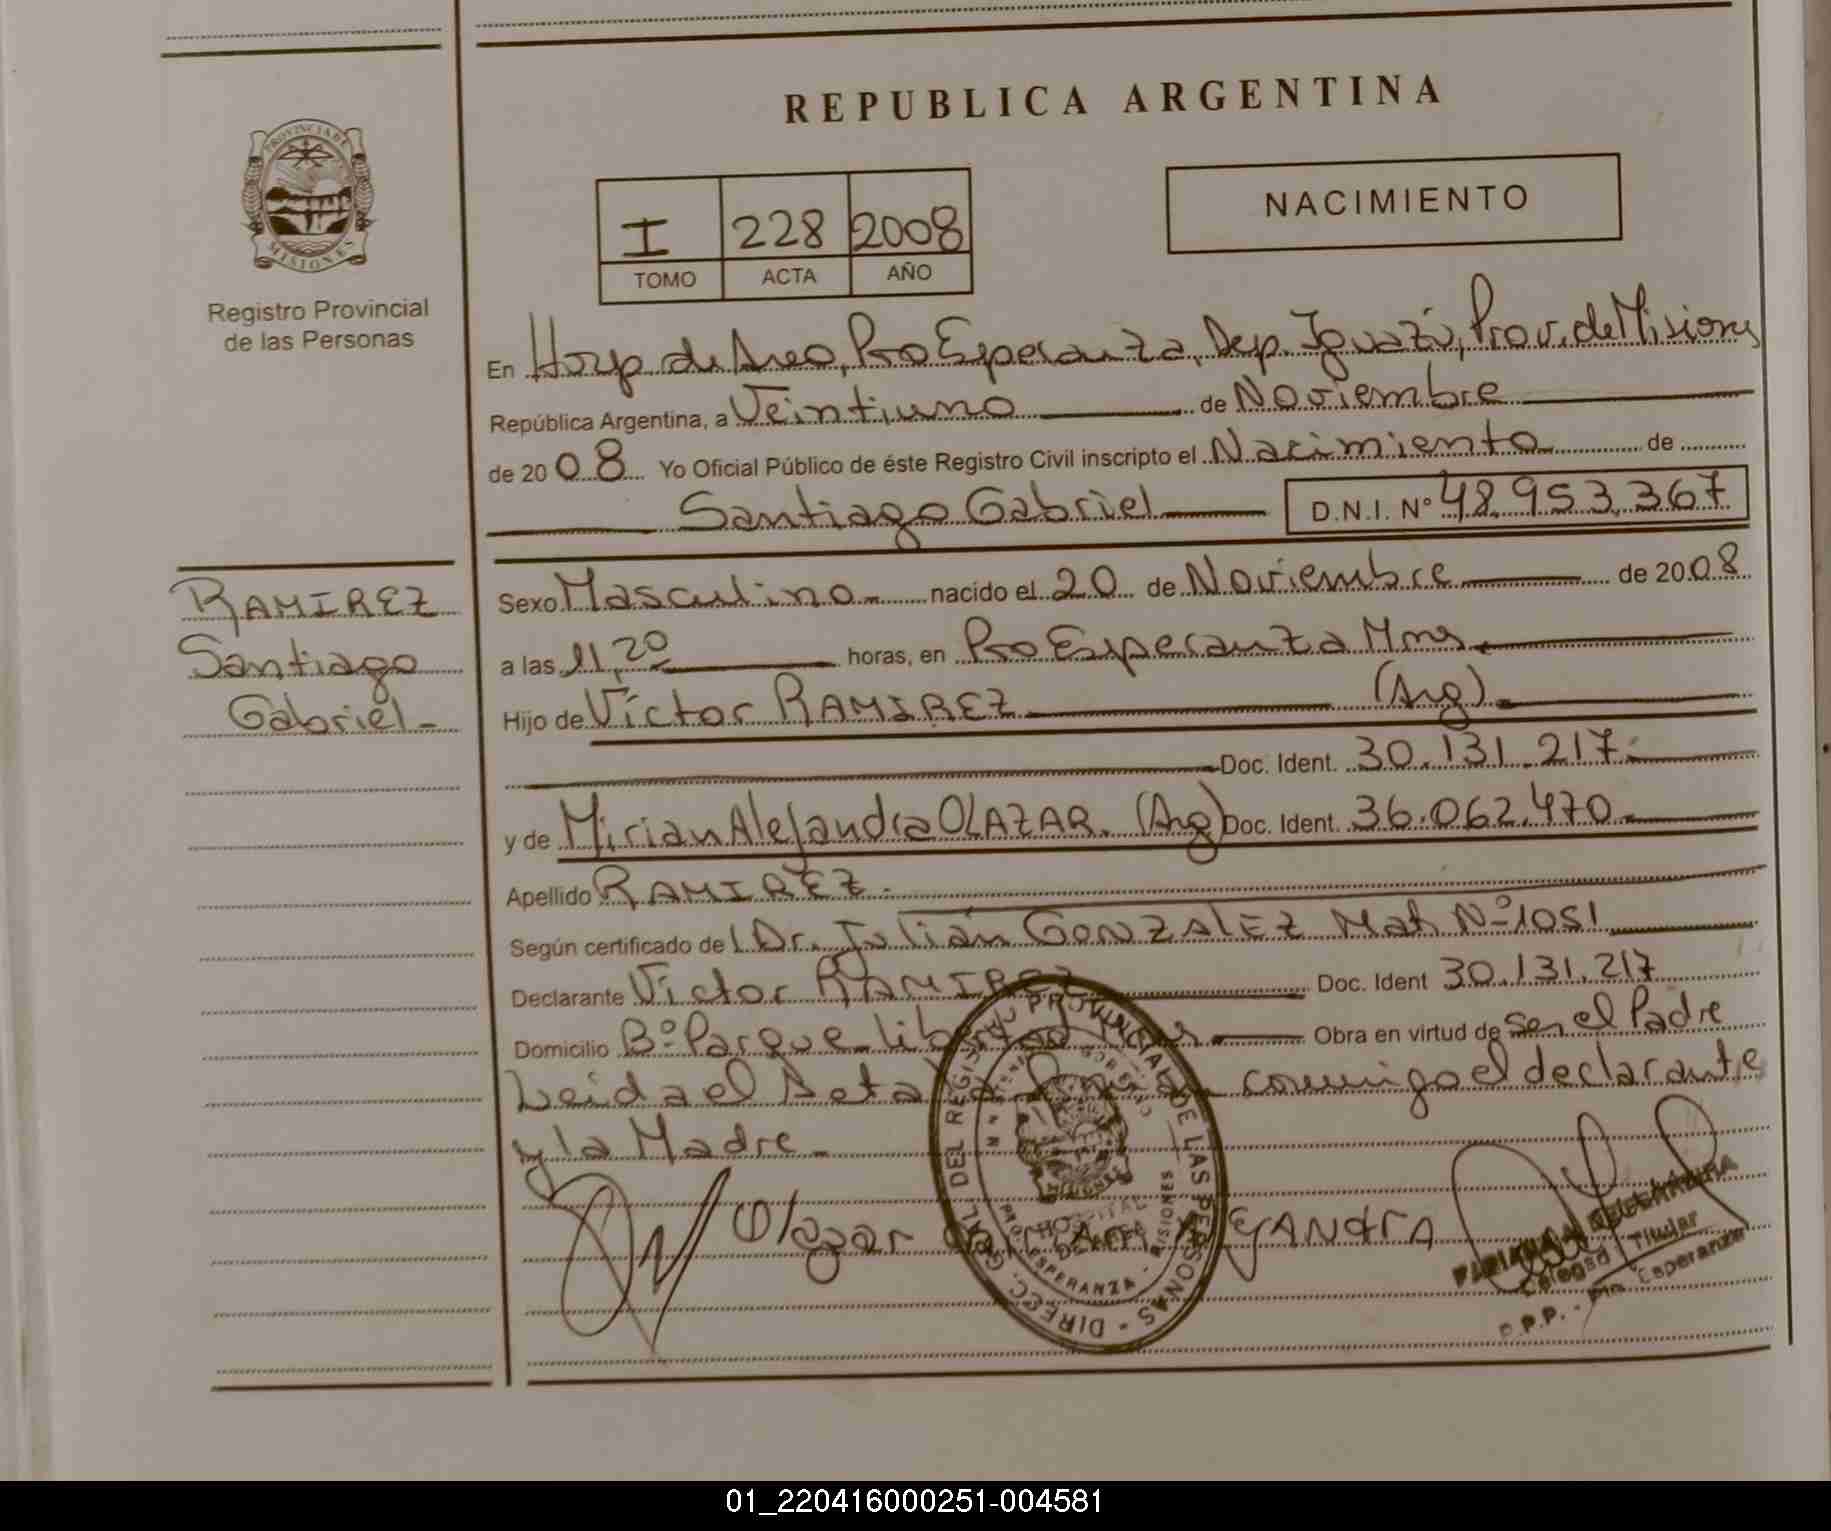 REPUBLICA ARGENTINA
PROVINCIA DE
MISIONES
Registro Provincial
de las Personas
I 228 2008
TOMO ACTA AÑO
NACIMIENTO
En Hosp de Area, Pto Esperanza, Dep. Iguazú, Prov. de Misiones
República Argentina, a Veintiuno de Noviembre
de 2008 Yo Oficial Público de éste Registro Civil inscripto el Nacimiento de
Santiago Gabriel D.N.I. Nº 48.953.367
RAMIREZ
Santiago
Gabriel-
Sexo Masculino nacido el 20 de Noviembre de 2008
a las 11,20 horas, en Pto Esperanza Mnes
Hijo de Victor RAMIREZ (Arg)
Doc. Ident. 30.131.217
y de Mirian Alejandra OLAZAR. (Arg) Doc. Ident. 36.062.470
Apellido RAMIREZ.
Según certificado del Dr. Julián GONZALEZ Mat Nº 1051
Declarante Victor RAMIREZ Doc. Ident 30.131.217
Domicilio Bº Parque Libertad Obra en virtud de ser el Padre
Leida el Acta la conmigo el declarante
y la Madre.
Olazar
DIRECC. GRAL DEL REGISTRO PROVINCIAL DE LAS PERSONAS -
MISIONES
HOSPITAL
DE AREA
PTO. ESPERANZA - MISIONES
Titular
Pto. Esperanza
01_220416000251-004581